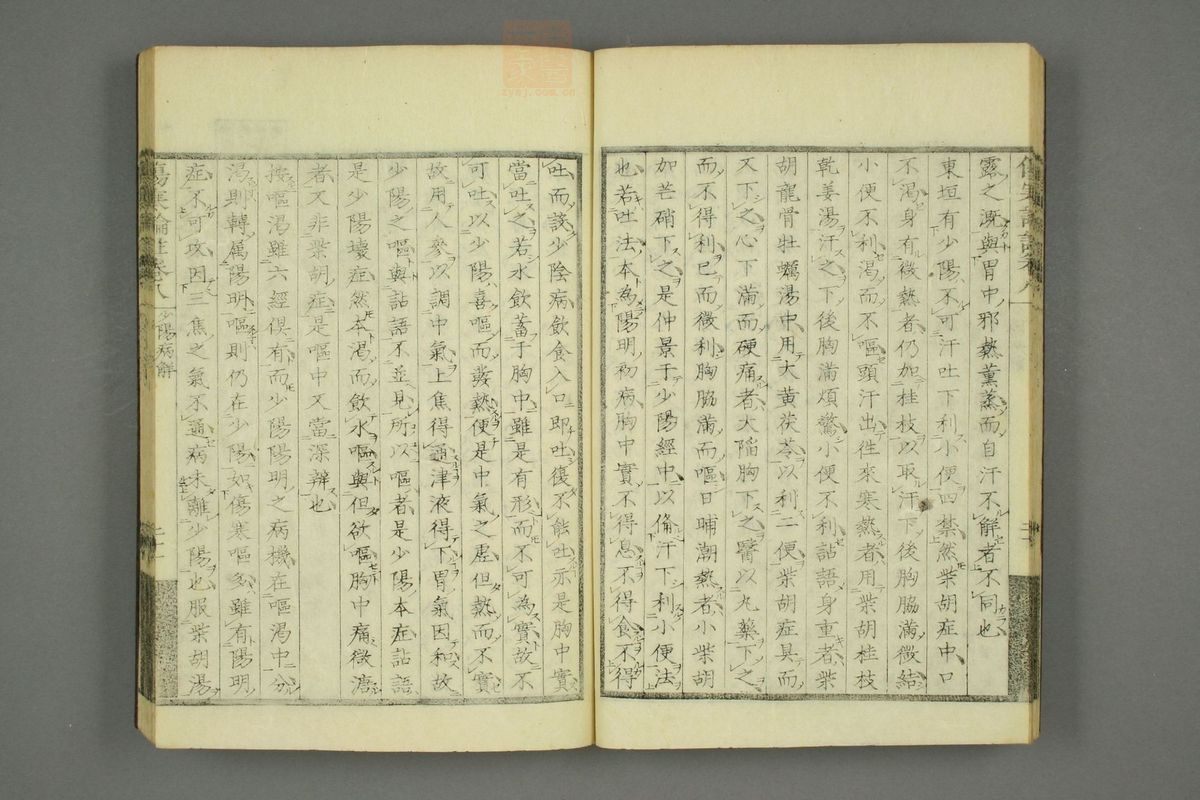 露之溉與胃中邪熱薰蒸而自汗不解者不同也
東垣有少陽不可汗吐下利小便四禁然柴胡症中口
不渴身有微熱者仍加桂枝以取汗下後胸脇滿微結
小便不利渴而不嘔頭汗出徃來寒熱者用柴胡桂枝
乾姜湯汗之下後胸滿煩驚小便不利詀語身重者柴
胡龍骨牡蠣湯中用大黃茯苓以利二便柴胡症具而
又下之心下滿而硬痛者大陷胸下之醫以丸藥下之
而不得利已而微利胸脇滿而嘔日晡潮熱者小柴胡
加芒硝下之是仲景于少陽經中以俻汗下利小便法
也若吐法本為陽明初病胸中實不得息不得食不得
吐而設少陰病飲食入口即吐復不能吐亦是胸中實
當吐之若水飲蓄于胸中雖是有形而不可為實故不
可吐以少陽喜嘔而發熱便是中氣之虛但熱而不實
故用人參以調中氣上焦得通津液得下胃氣因和故
少陽之嘔與詀語不並見所以嘔者是少陽本症詀語
是少陽壞症然本渴而飲水嘔與但欲嘔胸中痛微溏
者又非柴胡症是嘔中又當深辨也
按嘔渴雖六經俱有而少陽陽明之病機在嘔渴中分
渴則轉属陽明嘔則仍在少陽如傷寒嘔多雖有陽明
症不可攻因三焦之氣不通病未離少陽也服柴胡湯
少陽病解
zysj.com.cn